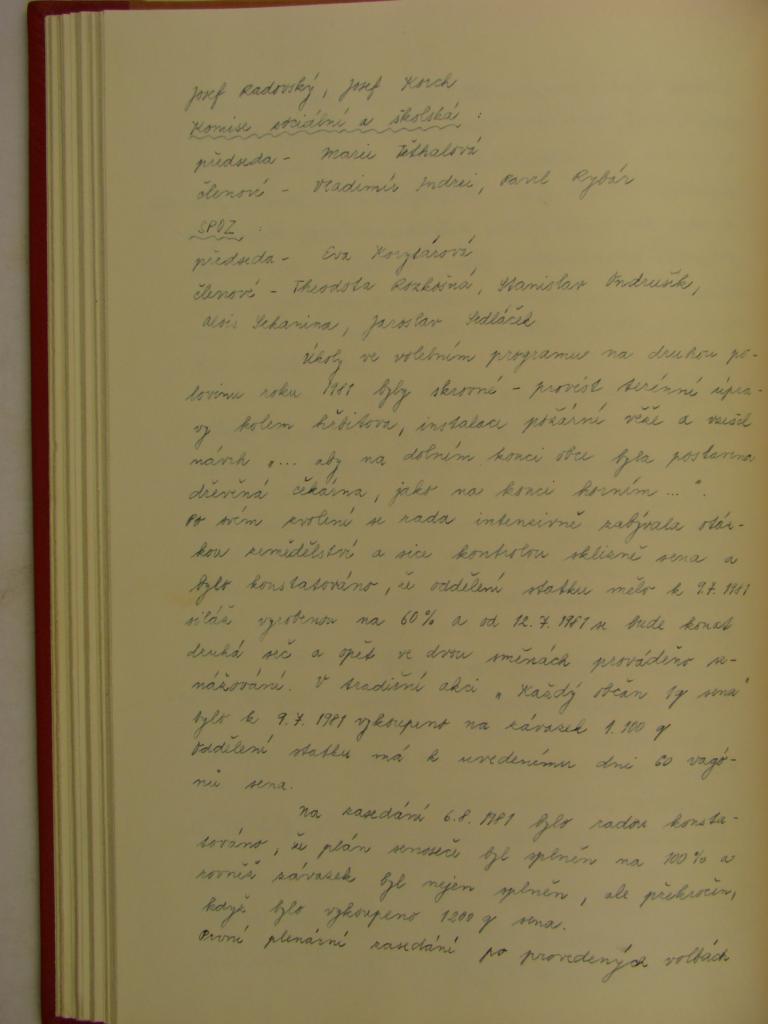 Josef Radovský, Josef Korch
Komise sociální a školská :
předseda - Marie Těthalová
členové - Vladimír Indrei, Pavel Rybár
SPOZ :
předseda - Eva Korytárová
členové - Theodota Rozkošná, Stanislav Ondrušek,
Alois Sekanina, Jaroslav Sedláček
Úkoly ve volebním programu na druhou po-
lovinu roku 1981 byly skrovné - provést terénní úpra-
vy kolem hřbitova, instalace požární věže a vzešel
návrh "... aby na dolním konci obce byla postavena
dřevěná čekárna, jako na konci horním ...".
Po svém zvolení se rada intenzivně zabývala otáz-
kou zemědělství a sice kontrolou sklizně sena a
bylo konstatováno, že oddělení statku mělo k 9.7.1981
siláž vyrobenou na 60% a od 12.7.1981 se bude konat
druhá seč a opět ve dvou směnách prováděno se-
nážování. V tradiční akci "Každý občan 1q sena"
bylo k 9.7.1981 vykoupeno na závazek 1.100 q
Oddělení statku má k uvedenému dni 60 vagó-
nů sena.
Na zasedání 6.8.1981 bylo radou konsta-
továno, že plán senoseče byl splněn na 100% a
rovněž závazek byl nejen splněn, ale překročen,
když bylo vykoupeno 1200 q sena.
První plenární zasedání po provedených volbách